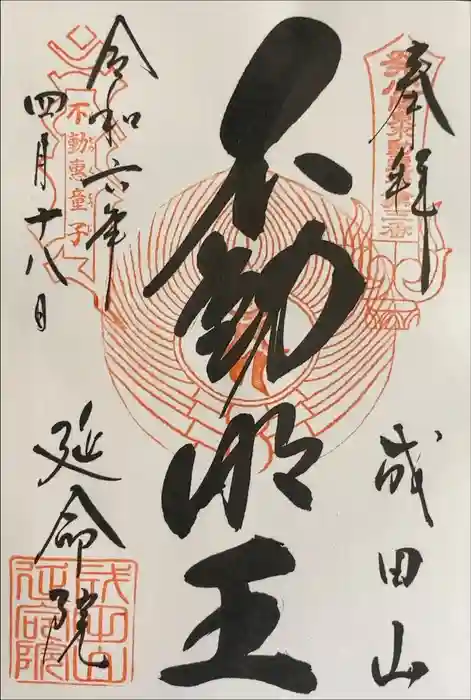 奉拝
成田山
不動明王
不動恵童子
令和六年
四月十八日
延命院
成田山
延命院